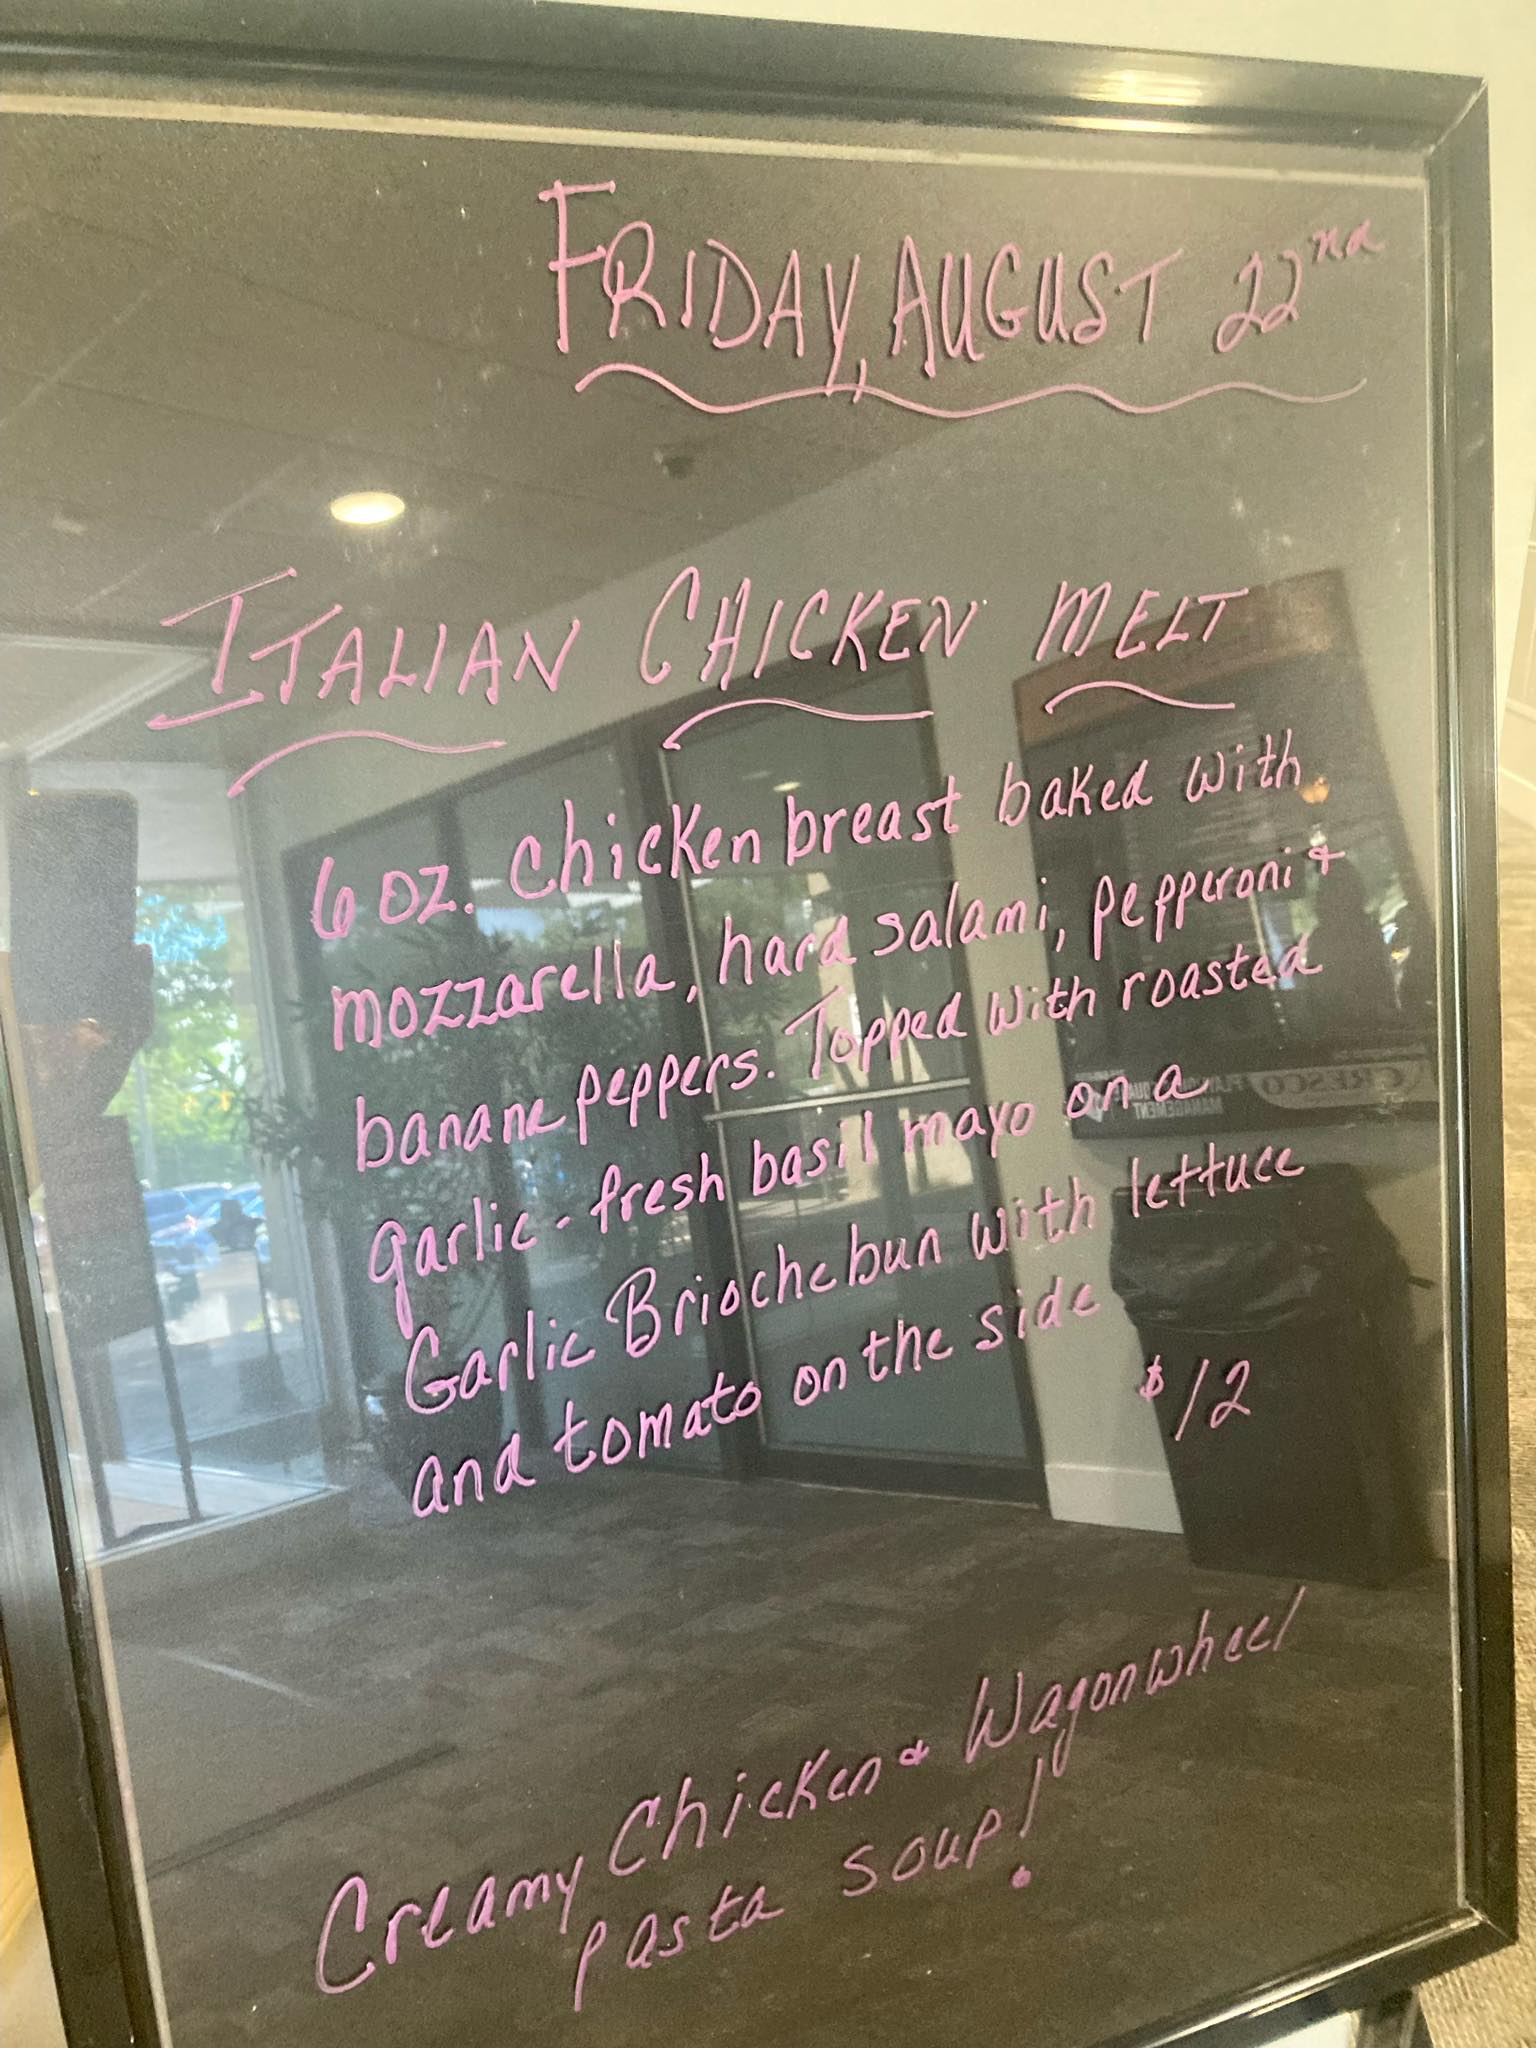 FRIDAY, AUGUST 22nd
ITALIAN CHICKEN MELT
6 oz. Chicken breast baked with
mozzarella, hard salami, pepperoni &
banana peppers. Topped with roasted
garlic-fresh basil mayo on a
Garlic Brioche bun with lettuce
and tomato on the side
$12
Creamy Chicken & Wagonwheel
pasta soup!
CRESCO
MANAGEMENT